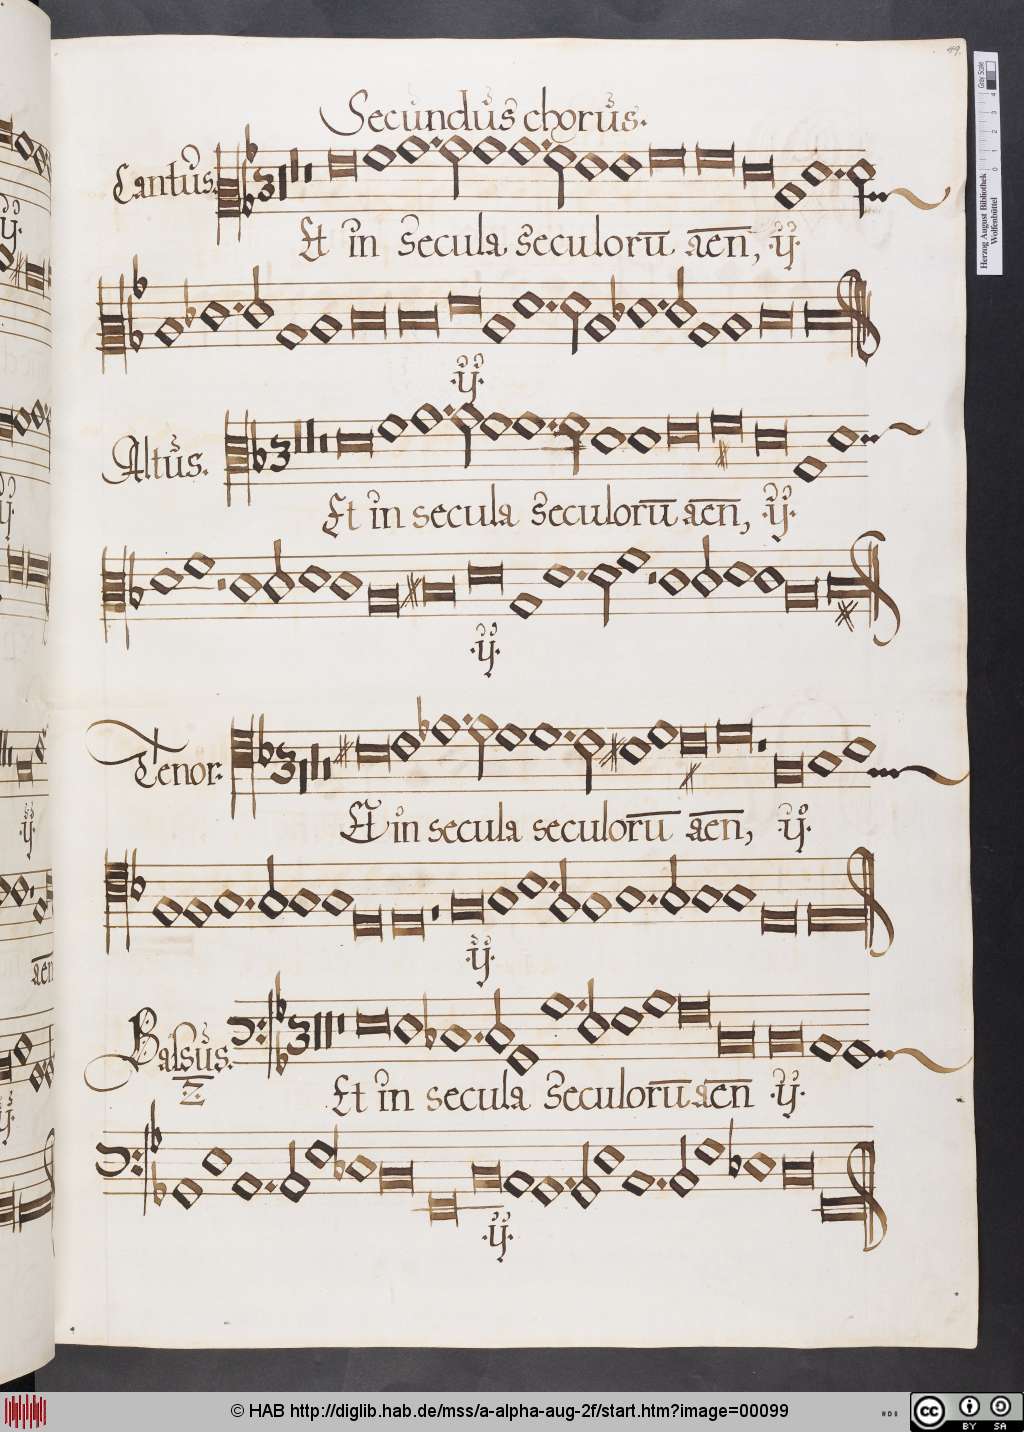 49.
Secundus chorus.
Cantus.
Et in secula seculorū aēn, .ij.
.ij.
Altus.
Et in secula seculorū aēn, .ij.
.ij.
Tenor.
Et in secula seculorū aēn, .ij.
.ij.
Bassus.
2.
Et in secula seculorū aēn .ij.
.ij.
Herzog August Bibliothek
Wolfenbüttel
Gray Scale
0 1 2 3 4
© HAB http://diglib.hab.de/mss/a-alpha-aug-2f/start.htm?image=00099
cc BY SA